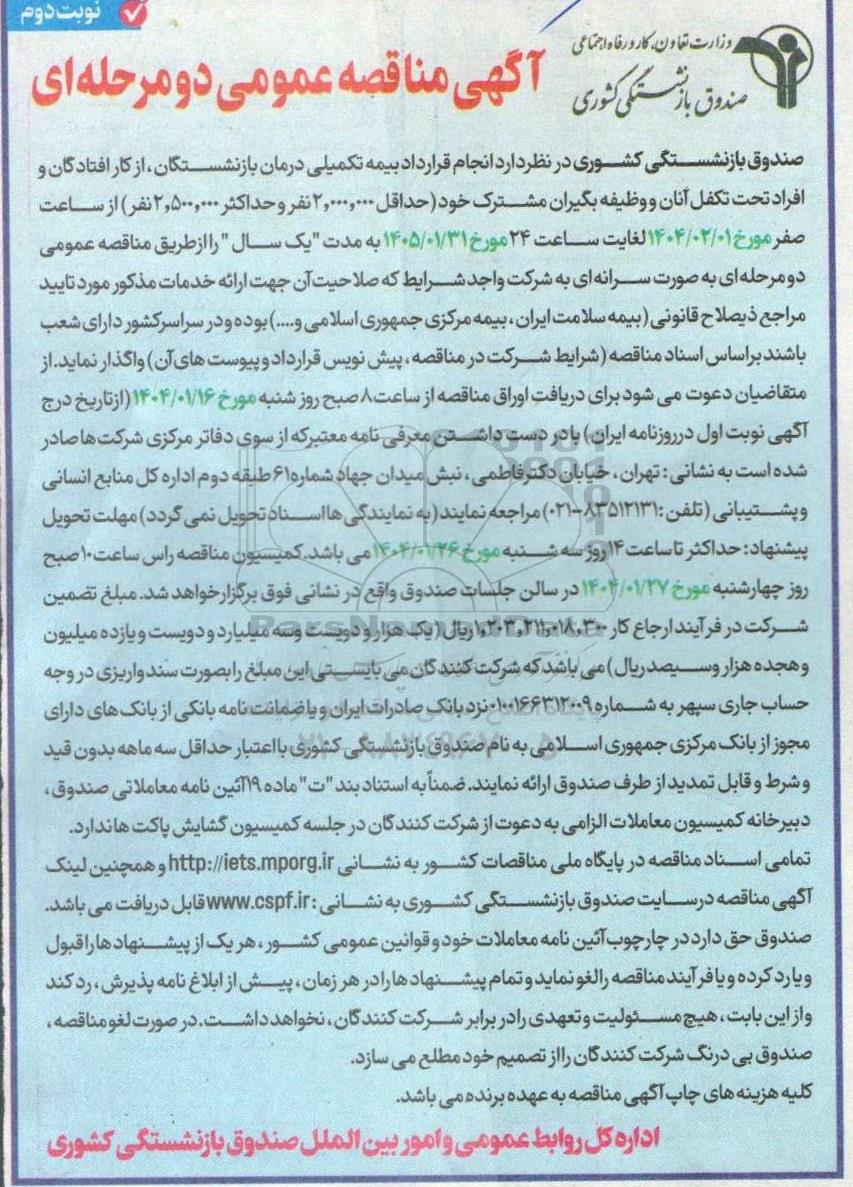 نوبت دوم
وزارت تعاون، کار و رفاه اجتماعی
صندوق بازنشستگی کشوری
آگهی مناقصه عمومی دو مرحله ای
صندوق بازنشستگی کشوری در نظر دارد انجام قرارداد بیمه تکمیلی درمان بازنشستگان، از کار افتادگان و
افراد تحت تکفل آنان و وظیفه بگیران مشترک خود (حداقل ۲,۰۰۰,۰۰۰ نفر و حداکثر ۲,۵۰۰,۰۰۰ نفر) از ساعت
صفر مورخ ۱۴۰۴/۰۲/۰۱ لغایت ساعت ۲۴ مورخ ۱۴۰۵/۰۱/۳۱ به مدت "یک سال" را از طریق مناقصه عمومی
دو مرحله ای به صورت سرانه ای به شرکت واجد شرایط که صلاحیت آن جهت ارائه خدمات مذکور مورد تایید
مراجع ذیصلاح قانونی (بیمه سلامت ایران، بیمه مرکزی جمهوری اسلامی و....) بوده و در سراسر کشور دارای شعب
باشند بر اساس اسناد مناقصه (شرایط شرکت در مناقصه، پیش نویس قرارداد و پیوست های آن) واگذار نماید. از
متقاضیان دعوت می شود برای دریافت اوراق مناقصه از ساعت ۸ صبح روز شنبه مورخ ۱۴۰۴/۰۱/۱۶ (از تاریخ درج
آگهی نوبت اول در روزنامه ایران) با در دست داشتن معرفی نامه معتبر که از سوی دفاتر مرکزی شرکت ها صادر
شده است به نشانی: تهران، خیابان دکتر فاطمی، نبش میدان جهاد شماره ۶۱ طبقه دوم اداره کل منابع انسانی
و پشتیبانی (تلفن: ۸۳۵۱۲۱۳۱-۰۲۱) مراجعه نمایند (به نمایندگی ها اسناد تحویل نمی گردد) مهلت تحویل
پیشنهاد: حداکثر تا ساعت ۱۴ روز سه شنبه مورخ ۱۴۰۴/۰۱/۲۶ می باشد. کمیسیون مناقصه راس ساعت ۱۰ صبح
روز چهارشنبه مورخ ۱۴۰۴/۰۱/۲۷ در سالن جلسات صندوق واقع در نشانی فوق برگزار خواهد شد. مبلغ تضمین
شرکت در فرآیند ارجاع کار ۱,۲۰۳,۲۱۱,۰۱۸,۳۰۰ ریال (یک هزار و دویست و سه میلیارد و دویست و یازده میلیون
و هجده هزار و سیصد ریال) می باشد که شرکت کنندگان می بایستی این مبلغ را بصورت سند واریزی در وجه
حساب جاری سپهر به شماره ۰۱۰۰۱۶۶۳۱۲۰۰۹ نزد بانک صادرات ایران و یا ضمانت نامه بانکی از بانک های دارای
مجوز از بانک مرکزی جمهوری اسلامی به نام صندوق بازنشستگی کشوری با اعتبار حداقل سه ماهه بدون قید
و شرط و قابل تمدید از طرف صندوق ارائه نمایند. ضمناً به استناد بند "ت" ماده ۱۹ آئین نامه معاملاتی صندوق،
دبیرخانه کمیسیون معاملات الزامی به دعوت از شرکت کنندگان در جلسه کمیسیون گشایش پاکت ها ندارد.
تمامی اسناد مناقصه در پایگاه ملی مناقصات کشور به نشانی http://iets.mporg.ir و همچنین لینک
آگهی مناقصه در سایت صندوق بازنشستگی کشوری به نشانی: www.cspf.ir قابل دریافت می باشد.
صندوق حق دارد در چارچوب آئین نامه معاملات خود و قوانین عمومی کشور، هر یک از پیشنهادها را قبول
و یا رد کرده و یا فرآیند مناقصه را لغو نماید و تمام پیشنهادها را در هر زمان، پیش از ابلاغ نامه پذیرش، رد کند
و از این بابت، هیچ مسئولیت و تعهدی را در برابر شرکت کنندگان، نخواهد داشت. در صورت لغو مناقصه،
صندوق بی درنگ شرکت کنندگان را از تصمیم خود مطلع می سازد.
کلیه هزینه های چاپ آگهی مناقصه به عهده برنده می باشد.
اداره کل روابط عمومی و امور بین الملل صندوق بازنشستگی کشوری